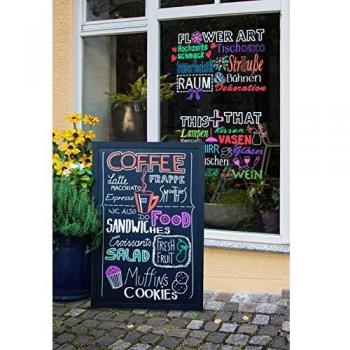 FLOWER ART
Hochzeits
schmuck
Tischdeko
Sträuße
RAUM
& Bühnen
Dekoration
THIS + THAT
Lampen
Kissen
VASEN
Gläser
WEIN
COFFEE
Latte
MACCHIATO
FRAPPE
Espresso
WE ALSO DO
FOOD
SANDWICHES
Croissants
SALAD
FRESH
FRUIT
Muffins
COOKIES